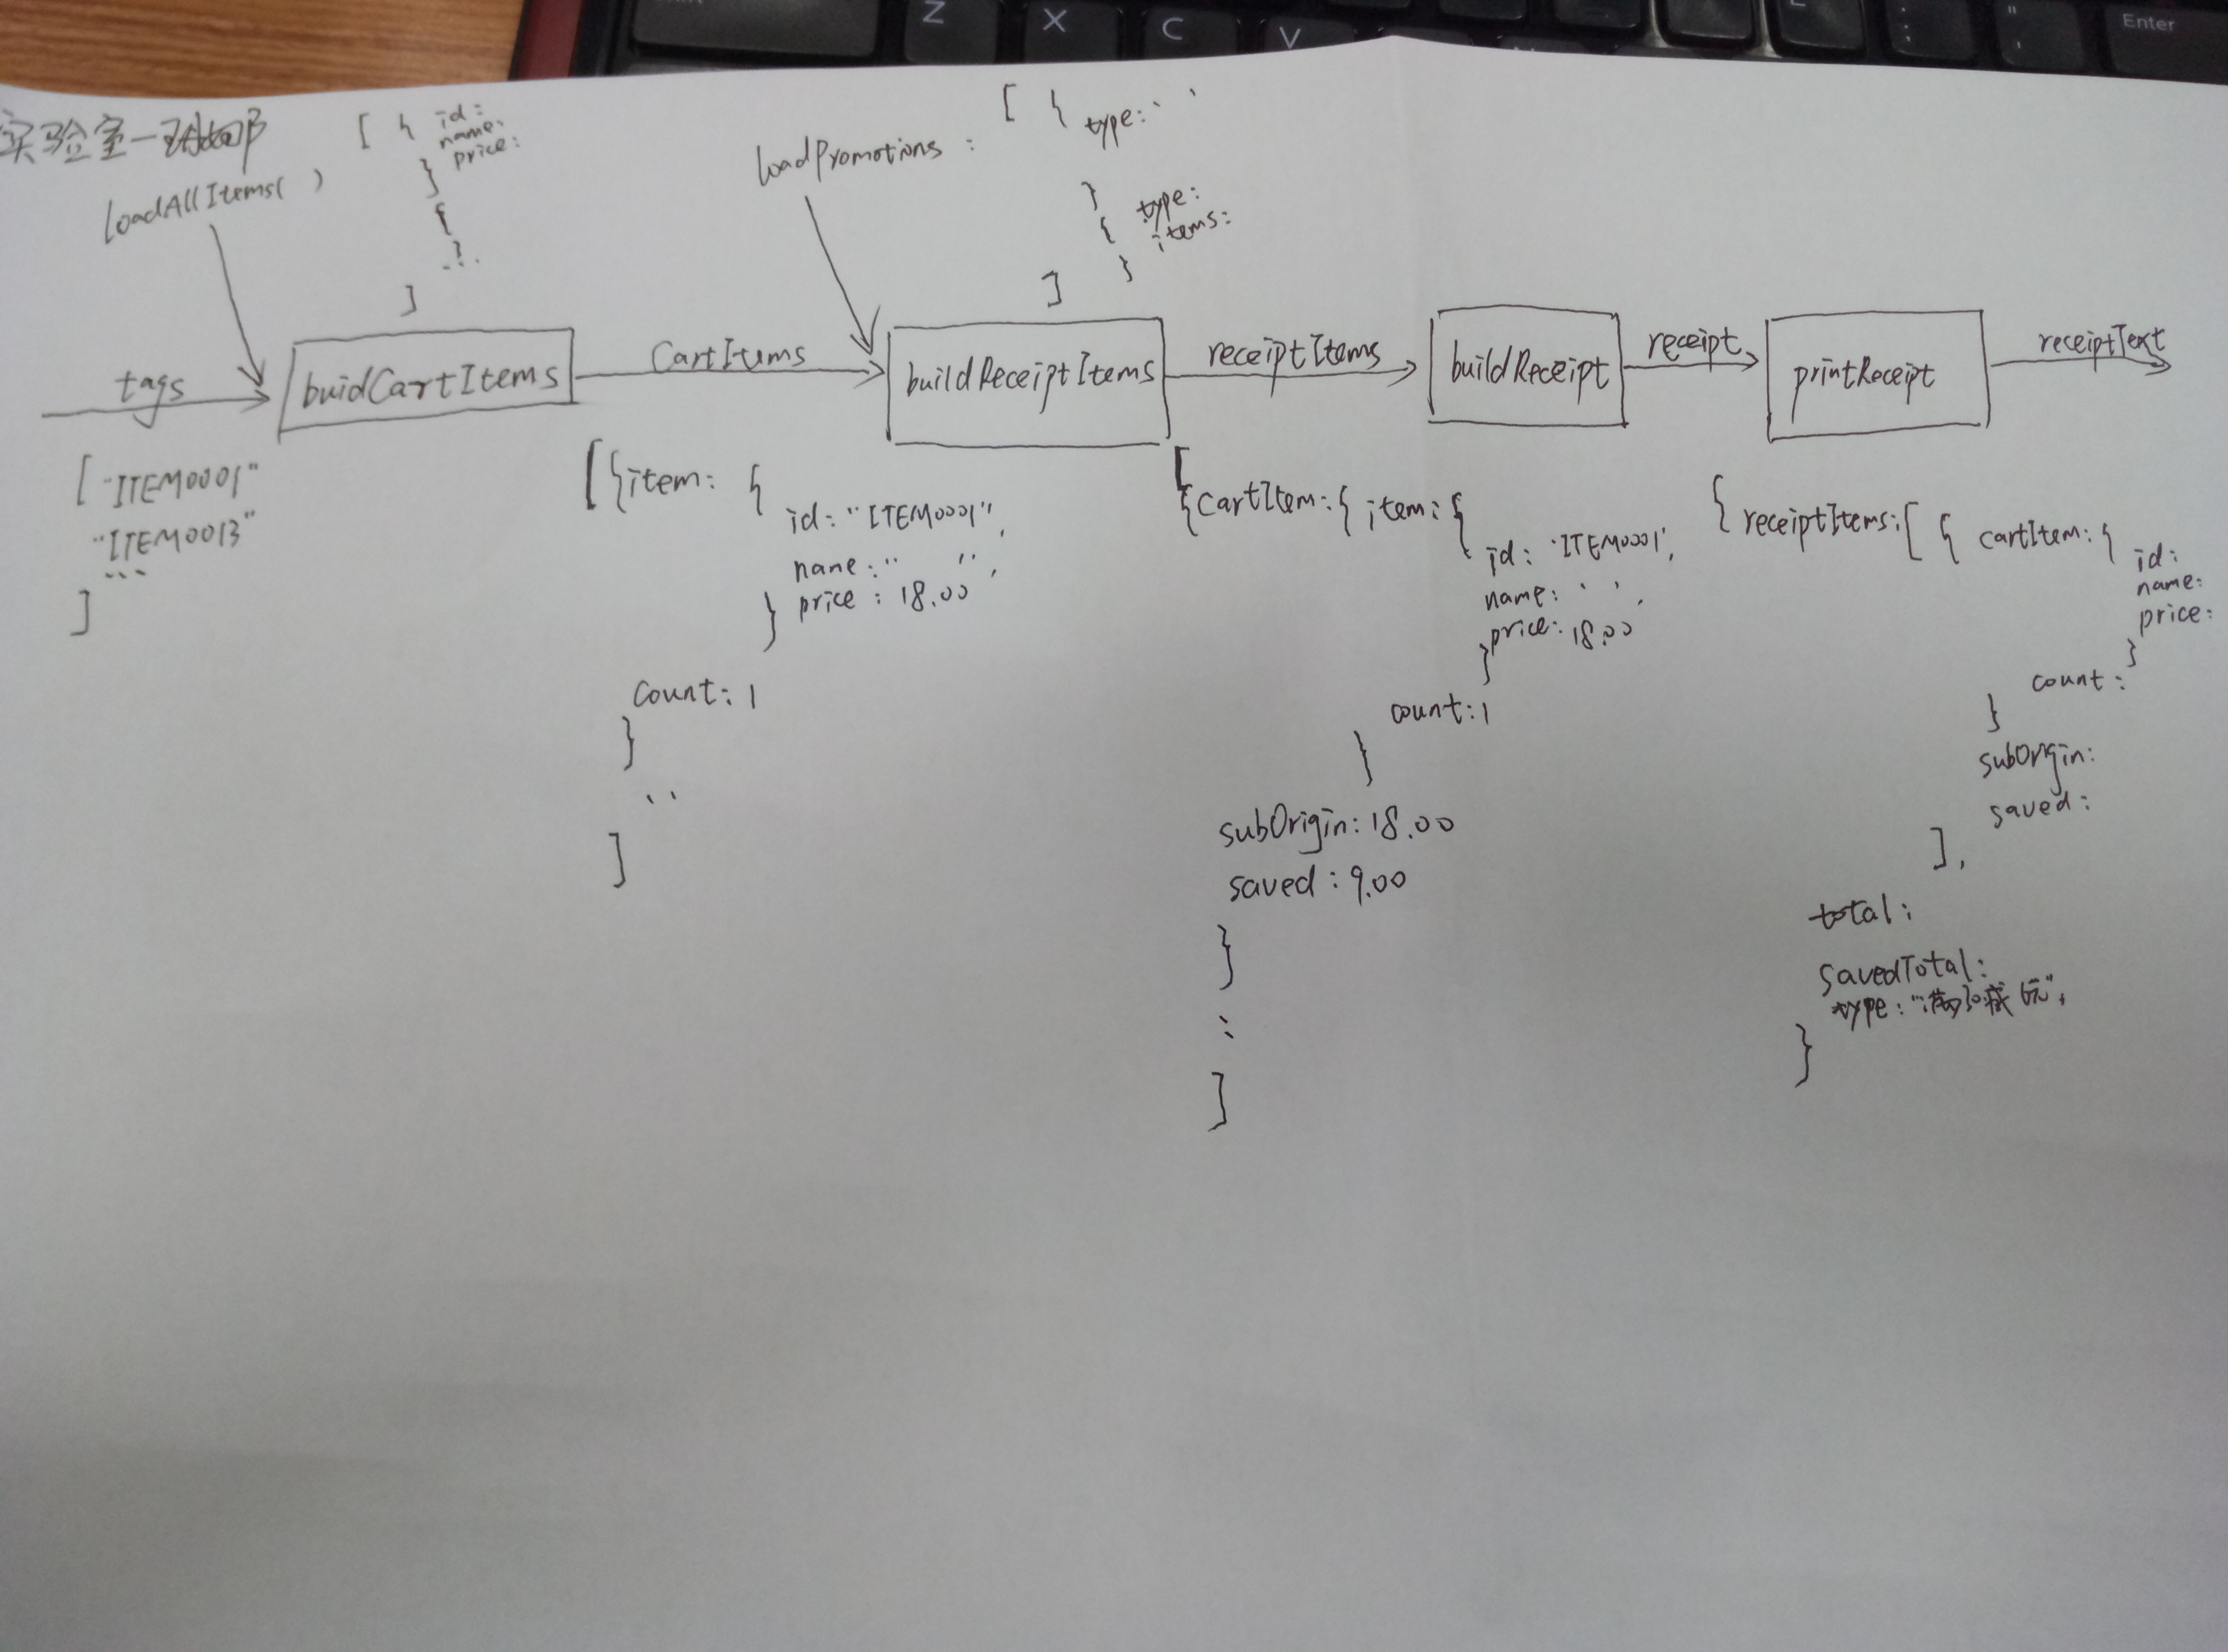 Z X C V
Enter
实验室一
loadAllItems( )
[ { id:
name:
price:
}
{
}
]
loadPromotions : [ { type: ' '
}
{ type:
items:
}
]
tags
buidCartItems
CartItems
buildReceiptItems
receiptItems
buildReceipt
receipt
printReceipt
receiptText
[ "ITEM0001"
"ITEM0013"
...
]
[ { item: {
id: "ITEM0001",
name: " ",
price : 18.00
}
count: 1
}
..
]
[
{ CartItem: { item: {
id: 'ITEM0001',
name: ' ',
price: 18.00
}
count: 1
}
subOrigin: 18.00
saved : 9.00
}
:
]
{ receiptItems: [ { cartItem: {
id:
name:
price:
}
count:
}
subOrigin:
saved:
],
total:
savedTotal:
type: "满30减6元",
}